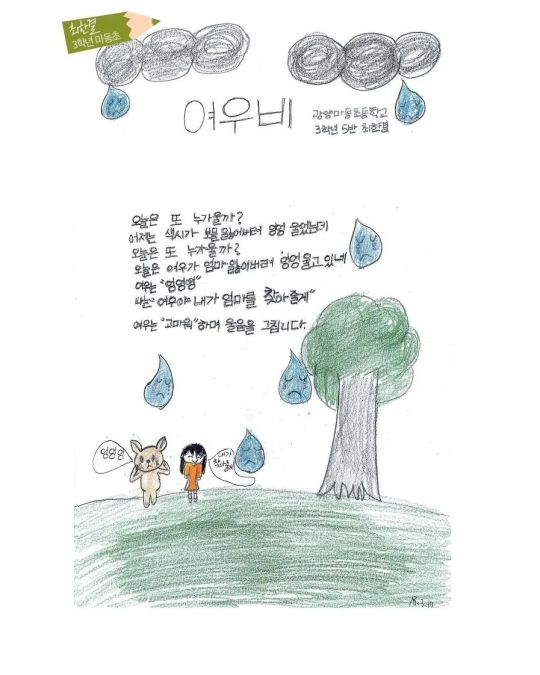 최한결
3학년 마동초
여우비
광양마동초등학교
3학년 5반 최한결
오늘은 또 누가울까?
어제는 색시가 보물 잃어버려 엉엉 울었는데
오늘은 또 누가울까?
오늘은 여우가 엄마 잃어버려 엉엉울고 있네
여우는 "엉엉엉"
나는 "여우야 내가 엄마를 찾아줄게"
여우는 "고마워" 하며 울음을 그칩니다.
엉엉엉
내가
찾아줄게